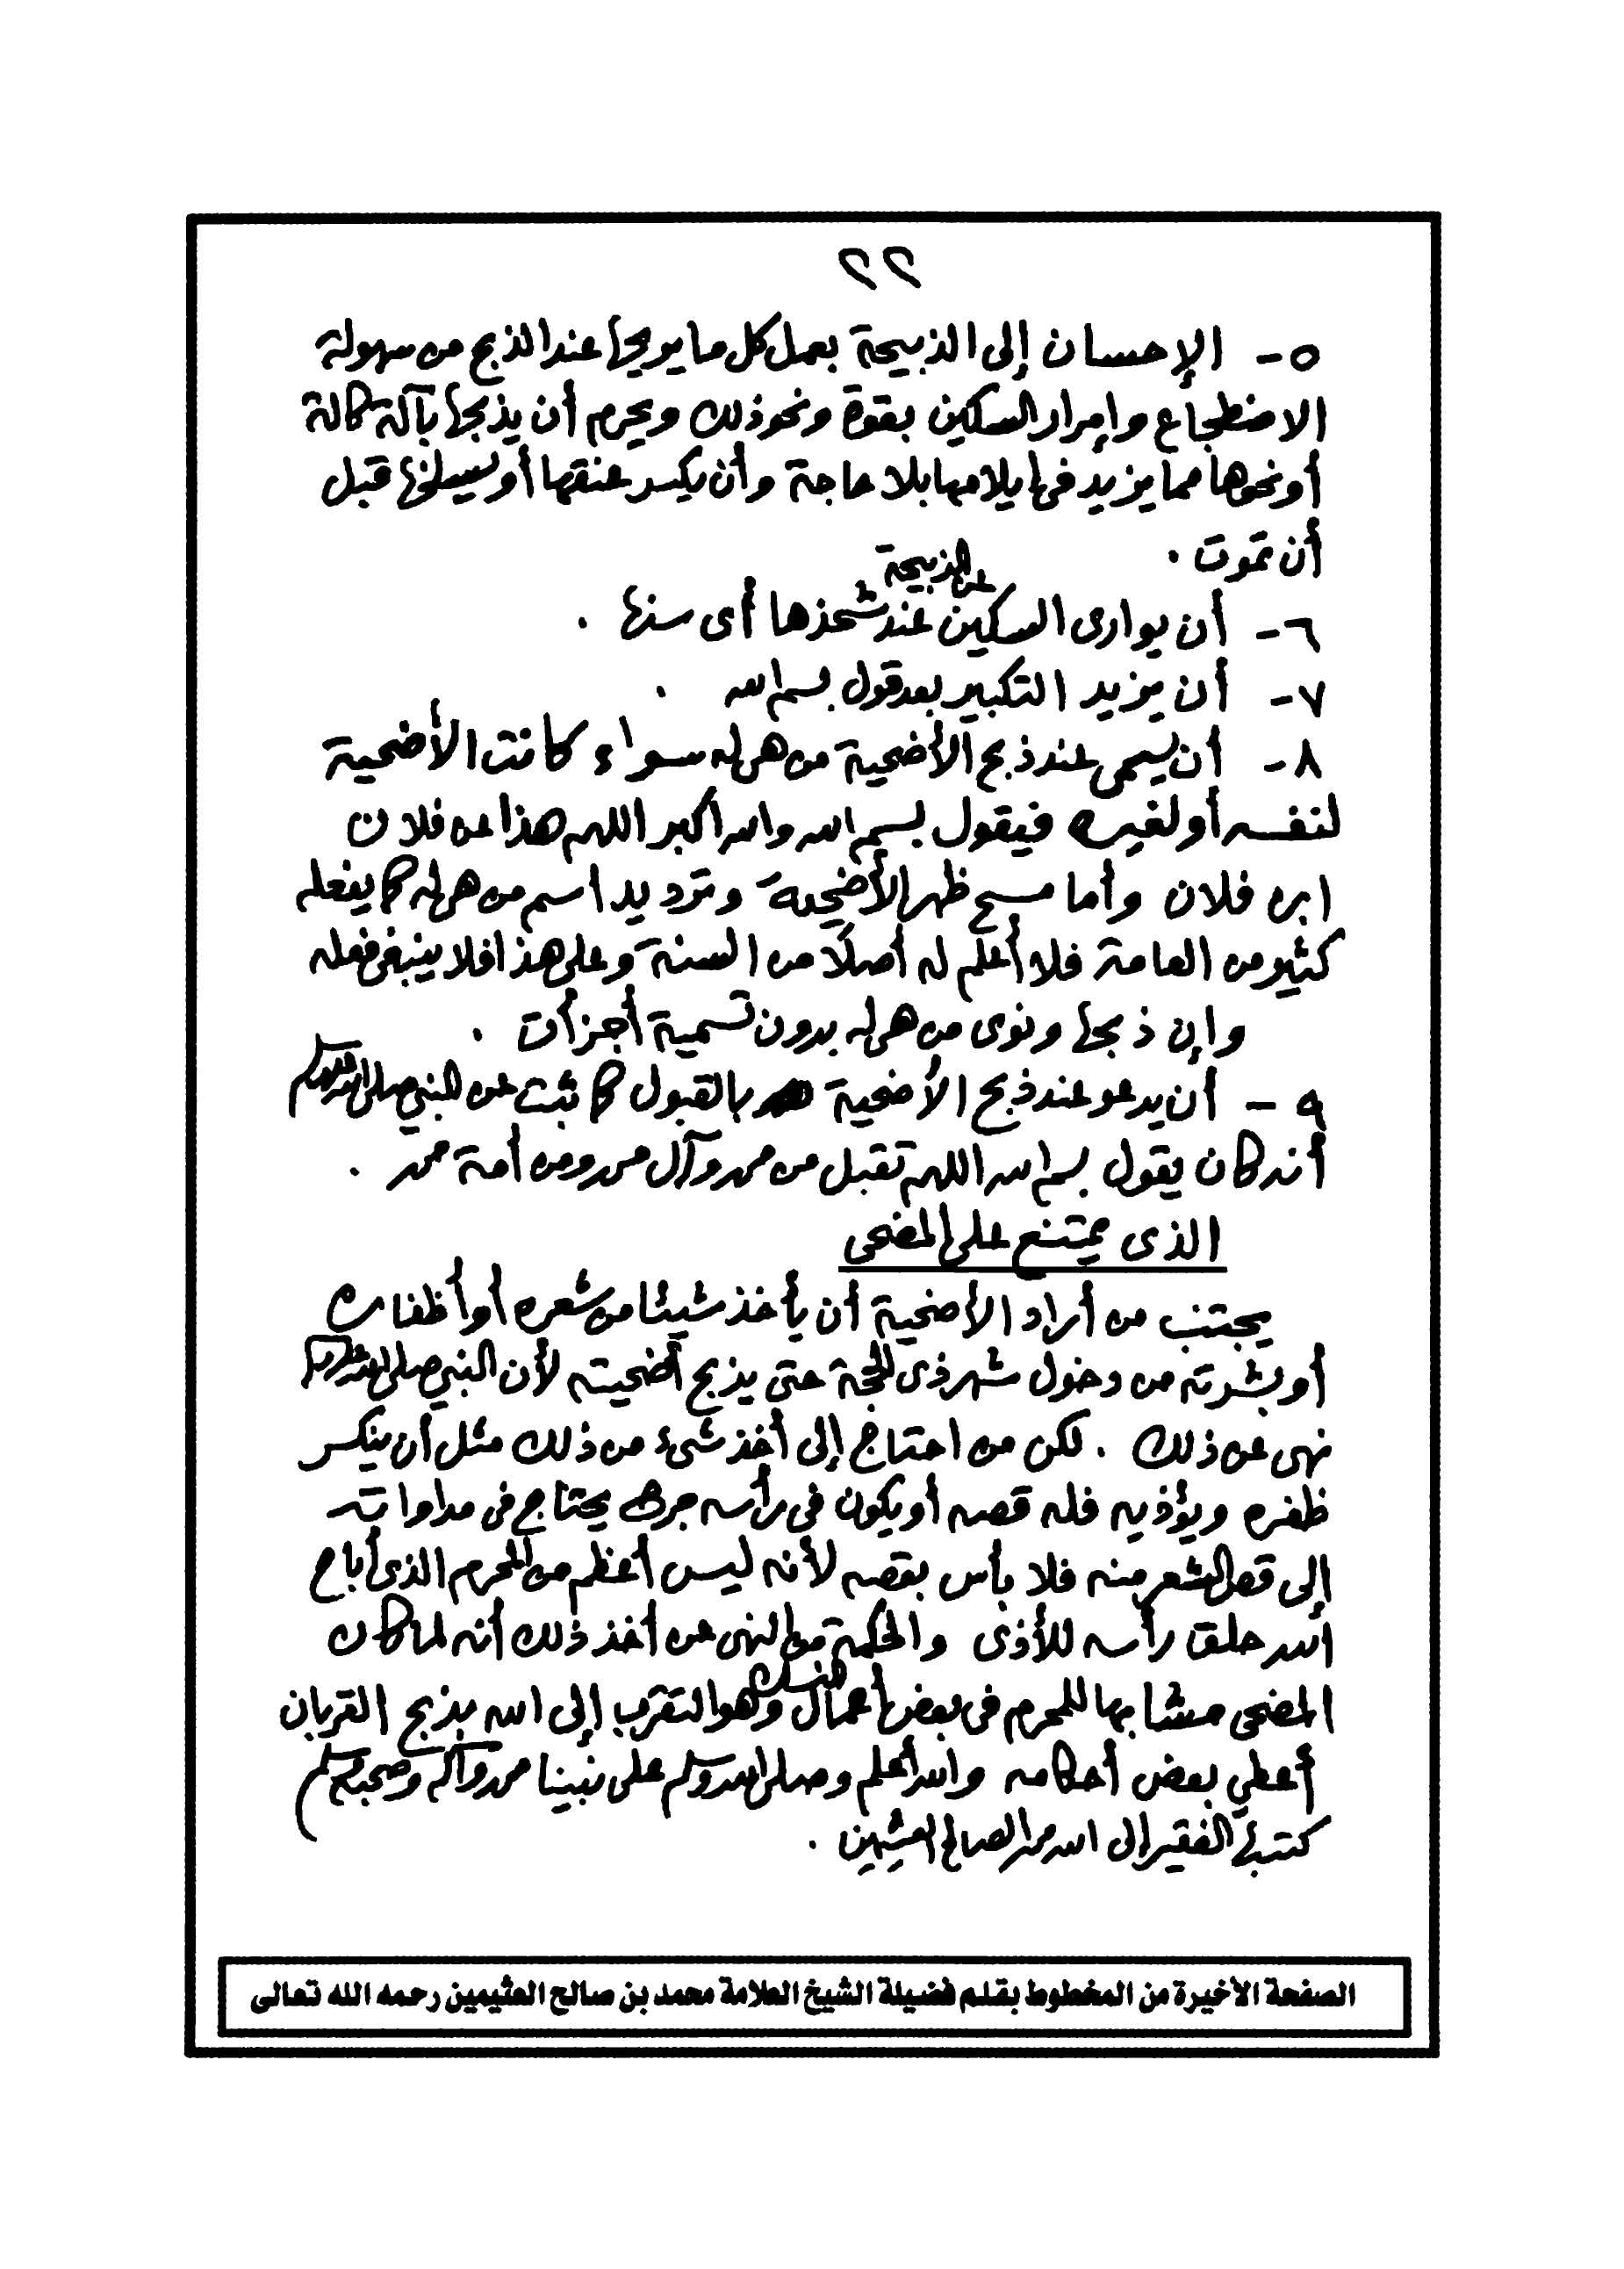 ٢٢
٥- الإحسان إلى الذبيحة بعمل كل ما يريحها عند الذبح من سهولة
الاضطجاع وإمرار السكين بقوة ونحو ذلك ويحرم أن يذبحها بآلة كالة
أو نحوها مما يزيد في إيلامها بلا حاجة وأن يكسر عنقها أو يسلخها قبل
أن تموت .
عن الذبيحة
٦- أن يوارى السكين عند شحذها أى سنها .
٧- أن يزيد التكبير بعد قول بسم الله .
٨- أن يسمى عند ذبح الأضحية من هى له سواء كانت الأضحية
لنفسه أو لغيره فيقول بسم الله والله أكبر اللهم هذا عن فلان
ابن فلان وأما مسح ظهر الأضحية وترديد اسم من هى له كما يفعله
كثير من العامة فلا أعلم له أصلًا من السنة وعلى هذا فلا ينبغى فعله
وإن ذبحها ونوى من هى له بدون تسمية أجزأت .
٩ - أن يدعو عند ذبح الأضحية بالقبول كما ثبت عن النبي صلى الله عليه وسلم
أنه كان يقول بسم الله اللهم تقبل من محمد وآل محمد ومن أمة محمد .
الذى يمتنع على المضحى
يجتنب من أراد الأضحية أن يأخذ شيئا من شعره أو أظفاره
أو بشرته من دخول شهر ذى الحجة حتى يذبح أضحيته لأن النبي صلى الله عليه وسلم
نهى عن ذلك . لكن من احتاج إلى أخذ شىء من ذلك مثل أن ينكسر
ظفره ويؤذيه فله قصه أو يكون فى رأسه جرح يحتاج فى مداواته
إلى قص الشعر منه فلا بأس بقصه لأنه ليس أعظم من المحرم الذى أباح
الله حلق رأسه للأذى والحكمة من النهى عن أخذ ذلك أنه لما كان
المضحى مشابها للمحرم فى بعض أعمال النسك وهو التقرب إلى الله بذبح القربان
أعطي بعض أحكامه والله أعلم وصلى الله وسلم على نبينا محمد وآله وصحبه وسلم
كتبها الفقير إلى الله محمد الصالح العثيمين .
الصفحة الأخيرة من المخطوط بقلم فضيلة الشيخ العلامة محمد بن صالح العثيمين رحمه الله تعالى